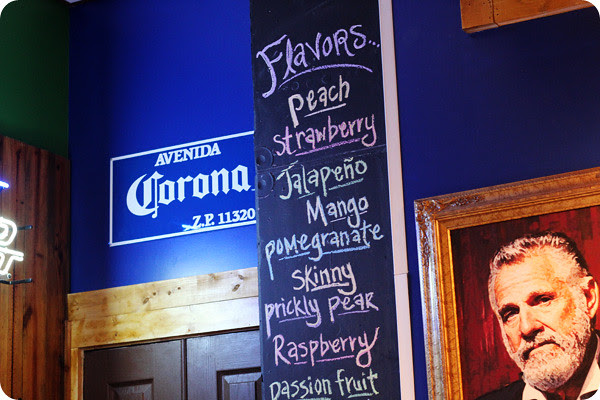 AVENIDA
Corona
Z.P. 11320
Flavors...
Peach
strawberry
Jalapeño
Mango
pomegranate
skinny
prickly pear
Raspberry
passion fruit